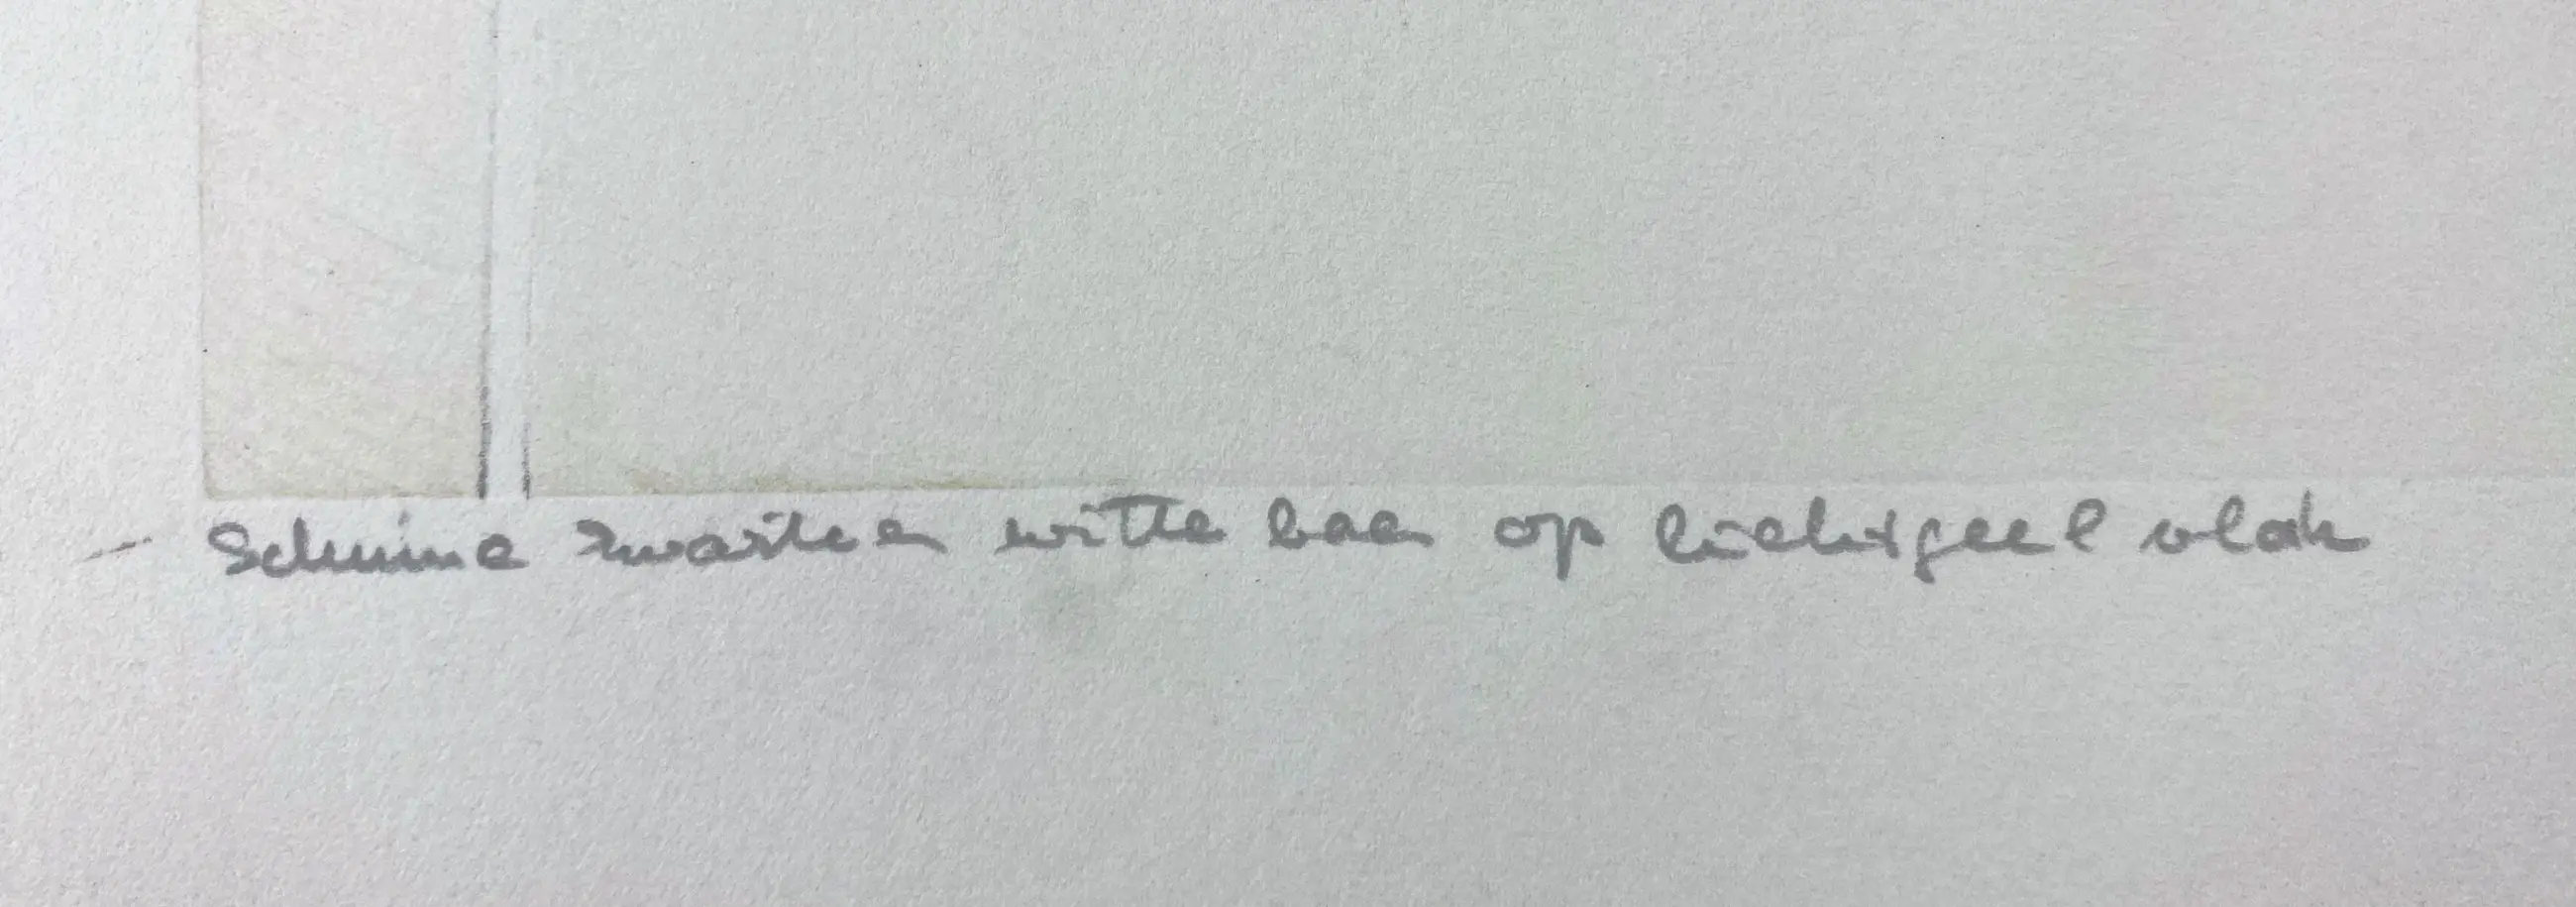 – Schuine zwarte en witte baan op lichtgeel vlak